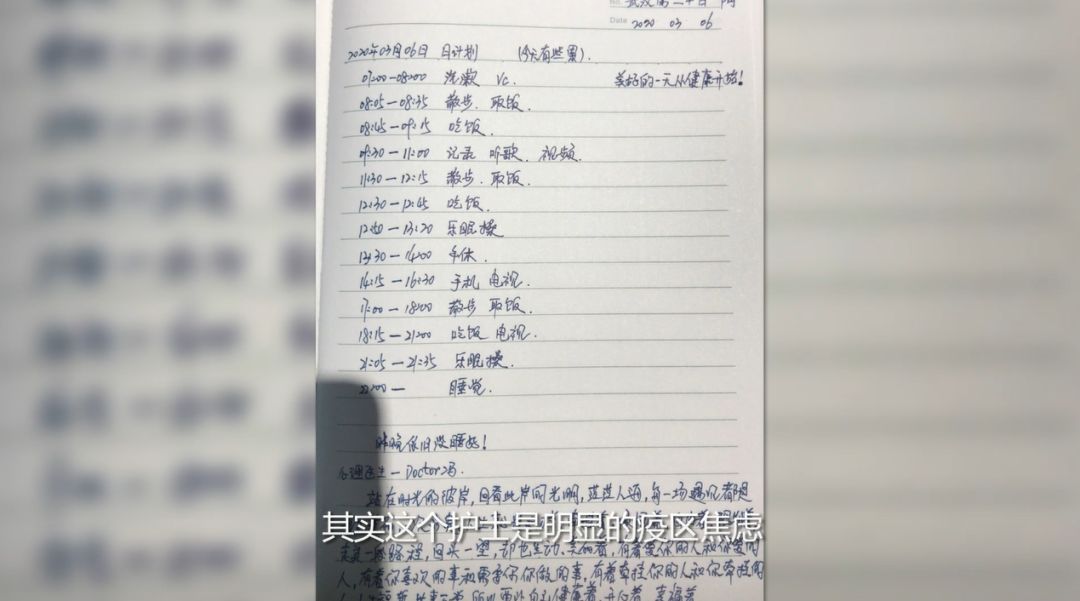 No. 武汉第二十日
Date 2020 03 06
2020年03月06日 日计划 (今天有些累).
07:00—08:00 洗漱 Vc. 美好的一天从健康开始!
08:05—08:35 散步. 取饭.
08:45—09:15 吃饭.
09:30—11:00 记录 听歌. 视频.
11:30—12:15 散步. 取饭.
12:30—12:45 吃饭.
12:50—13:20 乐眠操
13:30—14:00 午休.
14:15—16:30 手机 电视.
17:00—18:00 散步 取饭.
18:15—21:00 吃饭 电视.
21:05—21:35 乐眠操.
22:00— 睡觉.
昨晚依旧没睡好!
心理医生—Doctor冯.
站在时光的彼岸,回看此岸的光明,茫茫人海,每一场遇见都是
其实这个护士是明显的疫区焦虑
一路程,回头一望,却也生动.美丽着,有着爱你的人和你爱的
人,有着你喜欢的事和需要你做的事,有着牵挂你的人和你牵挂的